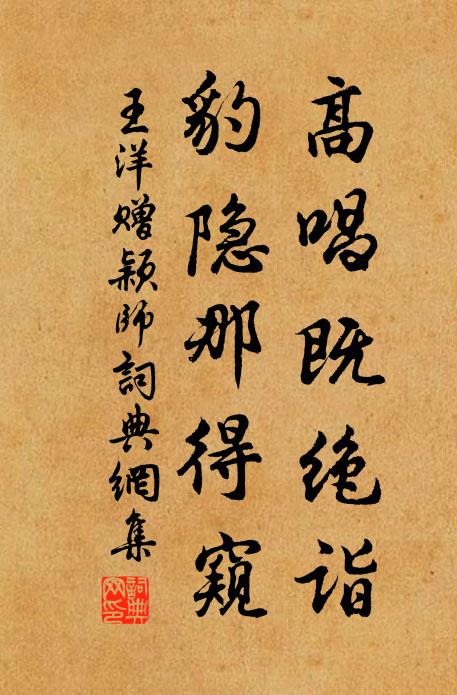 高唱既绝诣
豹隐那得窥
王洋赠颖师詞典網集
詞典网印